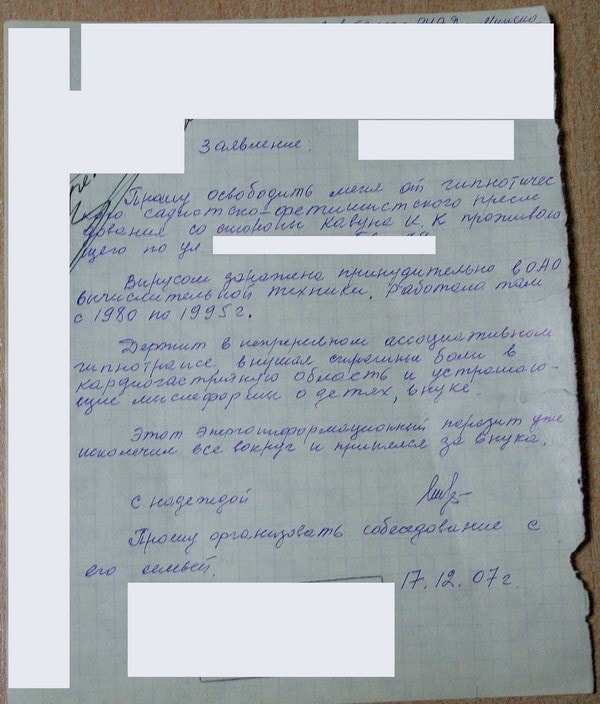 Заявление.
Прошу освободить меня от гипнотичес
кого садистско-фетишистского пресле
дования со стороны Кавуна И.К. проживаю
щего по ул.
Вирусом заражена принудительно в ОАО
вычислительной техники. Работала там
с 1980 по 1995 г.
Держит в непрерывном ассоциативном
гипнотрансе внушая страшные боли в
кардиогастритную область и устрашаю-
щие мыслеформы о детях, внуке.
Этот энергоинформационный паразит уже
искалечил все вокруг и принялся за внука.
с надеждой
Прошу организовать собеседование с
его семьёй.
17.12.07 г